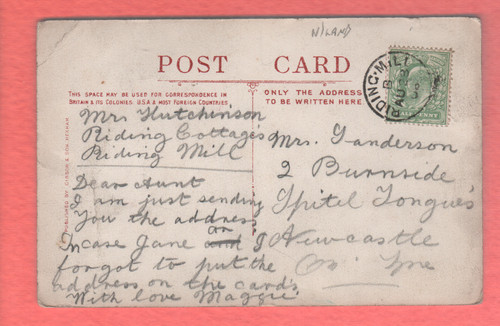 N/LAND
POST CARD
THIS SPACE MAY BE USED FOR CORRESPONDENCE IN
BRITAIN & ITS COLONIES. U.S.A & MOST FOREIGN COUNTRIES.
ONLY THE ADDRESS
TO BE WRITTEN HERE.
Mrs Hutchinson
Riding Cottages
Riding Mill
Dear Aunt
I am just sending
You the address
Incase Jane or I
forgot to put the
address on the cards
With love Maggie
Mrs. Sanderson
2 Burnside
Spitel Tongues
Newcastle
On Tyne
RIDING-MILL
AU